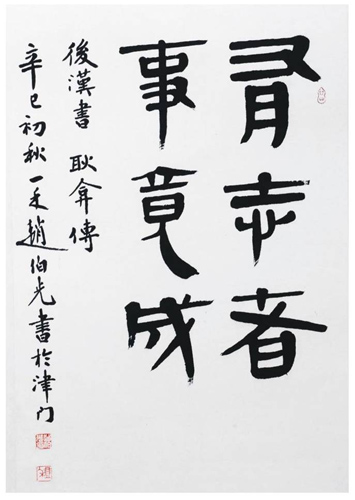 有志者
事竟成
後漢書 耿弇傳
辛巳初秋一禾趙伯光書於津门